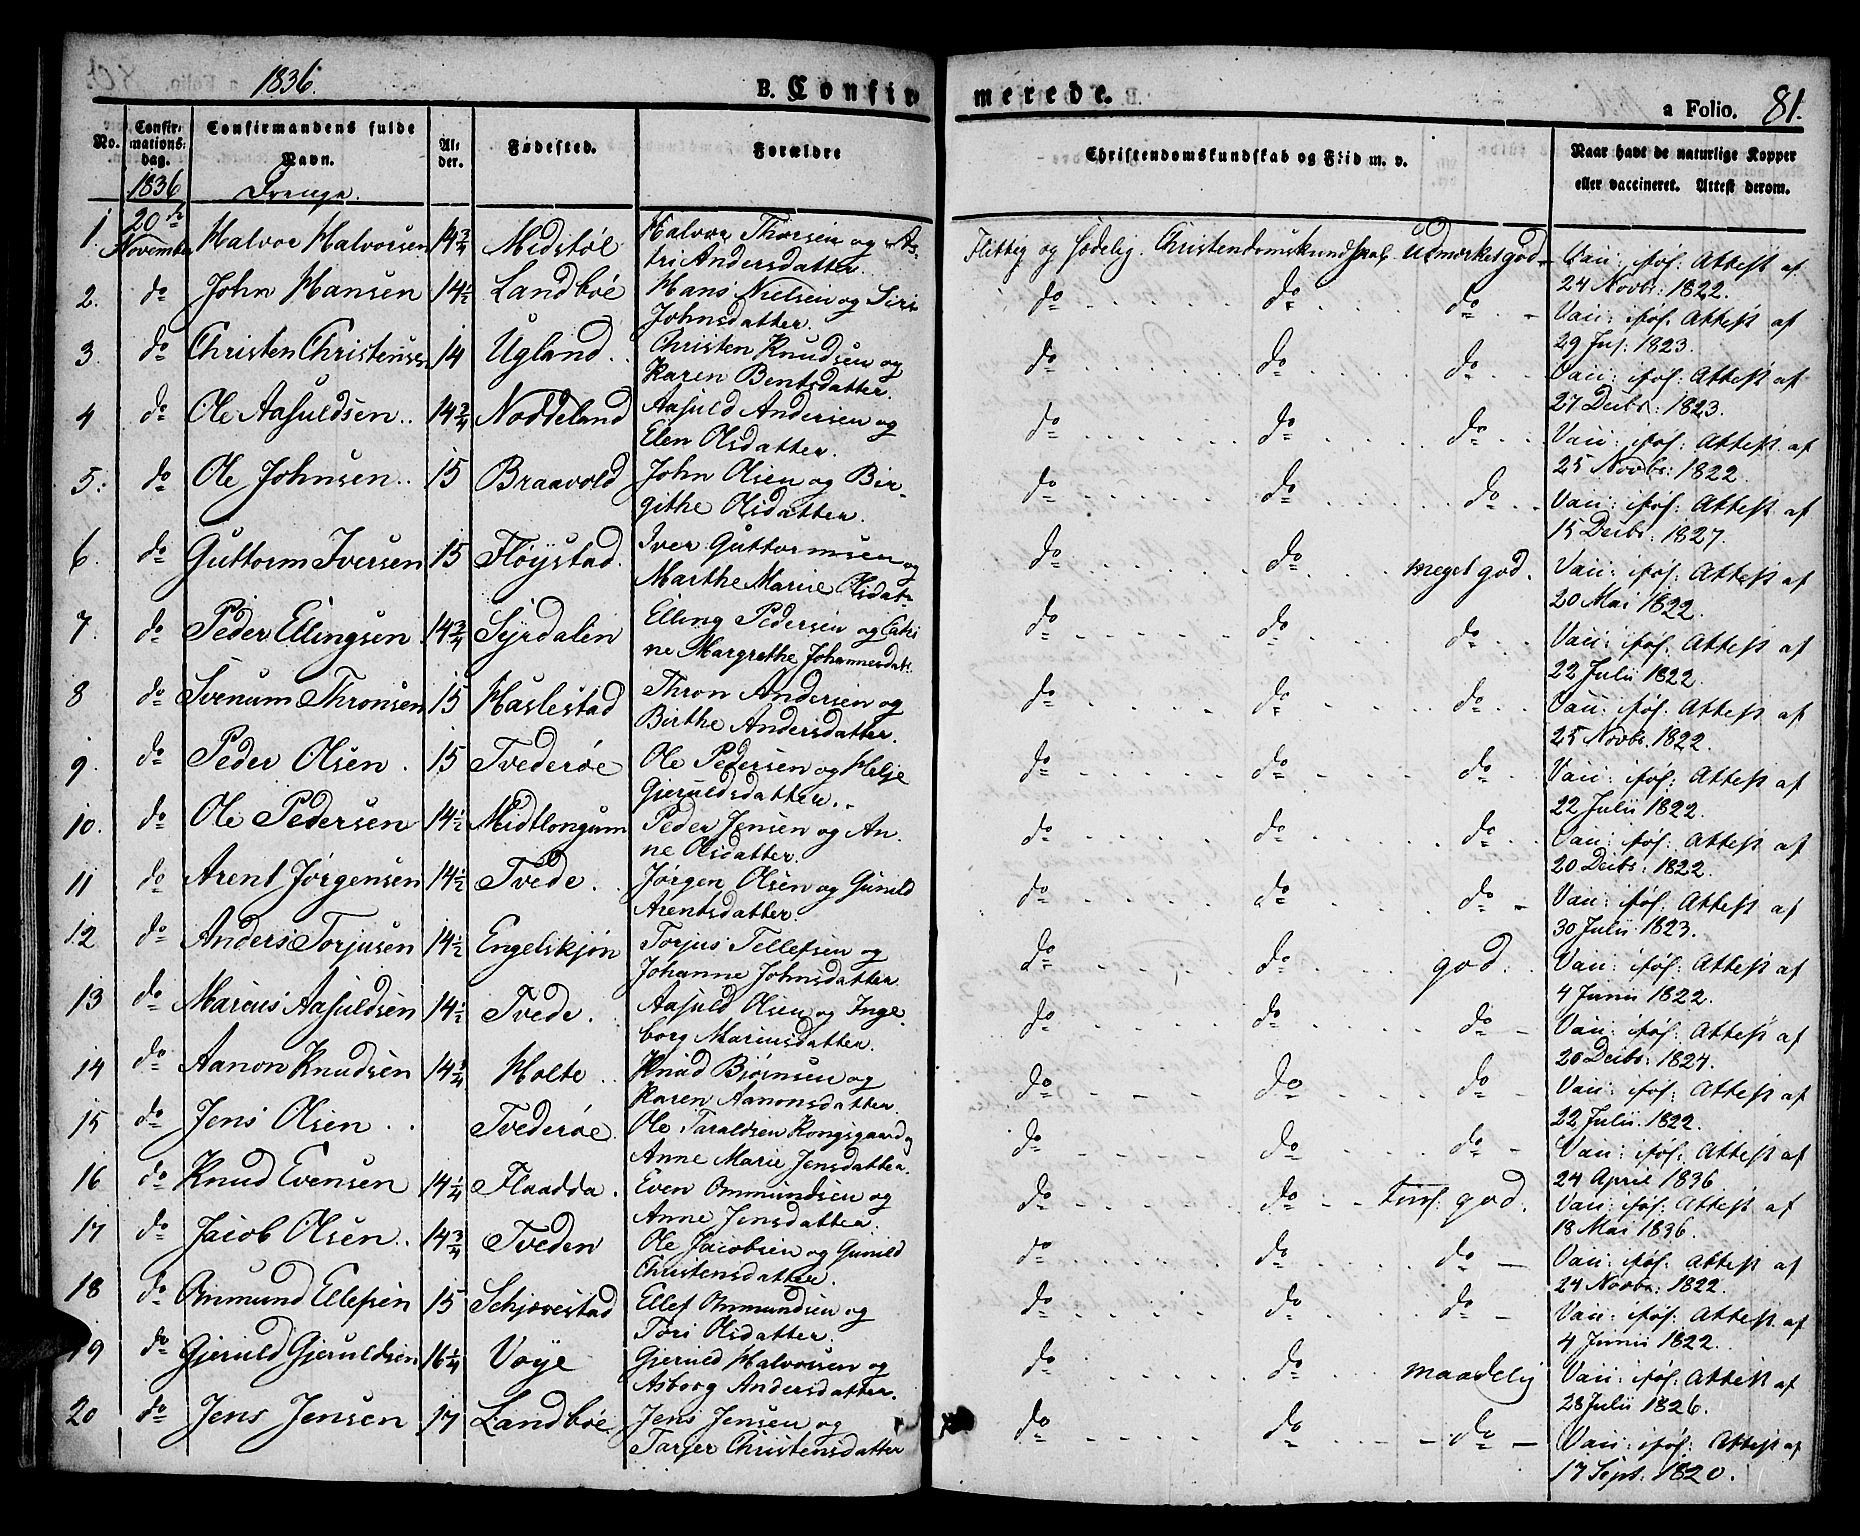 1836. B. Confirmerede. a Folio. 81.
No. Confirmationsdag. Confirmandens fulde Navn. Alder. Fødested. Forældre Christendomskundskab og Flid m. v. Naar havt de naturlige Kopper eller vaccineret. Attest derom.
1836 Drenge.
1. 20de November Halvor Halvorsen 14 3/4 Midstøl Halvor Thorsen og As- Flittig og sædelig. Christendomskundskab. Udmærket god. Vacc: iføl: Attest af
tri Andersdatter. 24 Novbr: 1822.
2. do John Hansen 14 1/2 Landbøe Hans Nielsen og Siri do do do Vacc: iføl: Attest af
Johnsdatter. 29 Jul: 1823.
3. do Christen Christensen 14 Ugland. Christen Knudsen og do do do Vacc: iføl: Attest af
Karen Bentsdatter. 27 Decbr: 1823.
4 do Ole Aasuldsen 14 3/4 Noddeland Aasuld Andersen og do do do Vacc: iføl: Attest af
Elen Olsdatter. 25 Novbr: 1822.
5: do Ole Johnsen 15 Braavold John Olsen og Bir- do do do Vacc: iføl: Attest af
githe Olsdatter. 15 Decbr: 1827.
6. do Guttorm Iversen 15 Fløystad. Iver Guttormsen og do do meget god. Vacc: iføl: Attest af
Marthe Marie Olsdatr 20 Mai 1822.
7. do Peder Ellingsen 14 3/4 Syrdalen Elling Pedersen og Cathri do do do Vacc: iføl: Attest af
ne Margrethe Johannesdatr. 22 Julii 1822.
8 do Svenum Thronsen 15 Haslestad Thron Andersen og do do do Vacc: iføl: Attest af
Birthe Andersdatter. 25 Novbr. 1822.
9. do Peder Olsen. 15 Tvederøe Ole Pedersen og Helje do do do Vacc: iføl: Attest af
Gjeruldsdatter. 22 Julii 1822.
10. do Ole Pedersen 14 1/2 Midtlongum Peder Jensen og An- do do do Vacc: iføl: Attest af
ne Olsdatter. 20 Decbr: 1822.
11 do Arent Jørgensen 14 1/2 Tvede. Jørgen Olsen og Gunild do do do Vacc: iføl: Attest af
Arentsdatter. 30 Julii 1823.
12 do Anders Torjusen 14 1/2 Engelskjøn Torjus Tellefsen og do do god. Vacc: iføl: Attest af
Johanne Johnsdatter 4 Junii 1822.
13 do Marcus Aasuldsen 14 1/2 Tvede. Aasuld Olsen og Inge- do do do Vacc: iføl: Attest af
borg Marcusdatter. 20 Decbr: 1824.
14 do Aanon Knudsen 14 3/4 Holte Knud Bjørnsen og do do do Vacc: iføl: Attest af
Karen Aanonsdatter. 22 Julii. 1822.
15 do Jens Olsen Tvederøe. Ole Taraldsen Kongsgaard og do do do Vacc: iføl: Attest af
Anne Marie Jensdatter. 24 April 1836.
16 do Knud Evensen 14 1/4 Flaadda. Even Ommundsen og do do temf. god. Vacc: iføl: Attest af
Anne Jensdatter. 18 Mai 1836.
17 do Jacob Olsen 14 3/4 Tveden Ole Jacobsen og Gunild do do do Vacc: iføl: Attest af
Christensdatter. 24 Novbr: 1822.
18 do Ommund Ellefsen 15 Schjovestad Ellef Ommundsen og do do do Vacc: iføl: Attest af
Tori Olsdatter. 4 Junii 1822.
19 do Gjeruld Gjeruldsen 16 1/4 Voye Gjeruld Halvorsen og do do maadelig Vacc: iføl: Attest af
Asborg Andersdatter. 28 Julii 1826.
20 do Jens Jensen 17 Landbøe. Jens Jensen og do do do Vacc: iføl: Attest af
Tarjer Christensdatter 17 Sept. 1820.